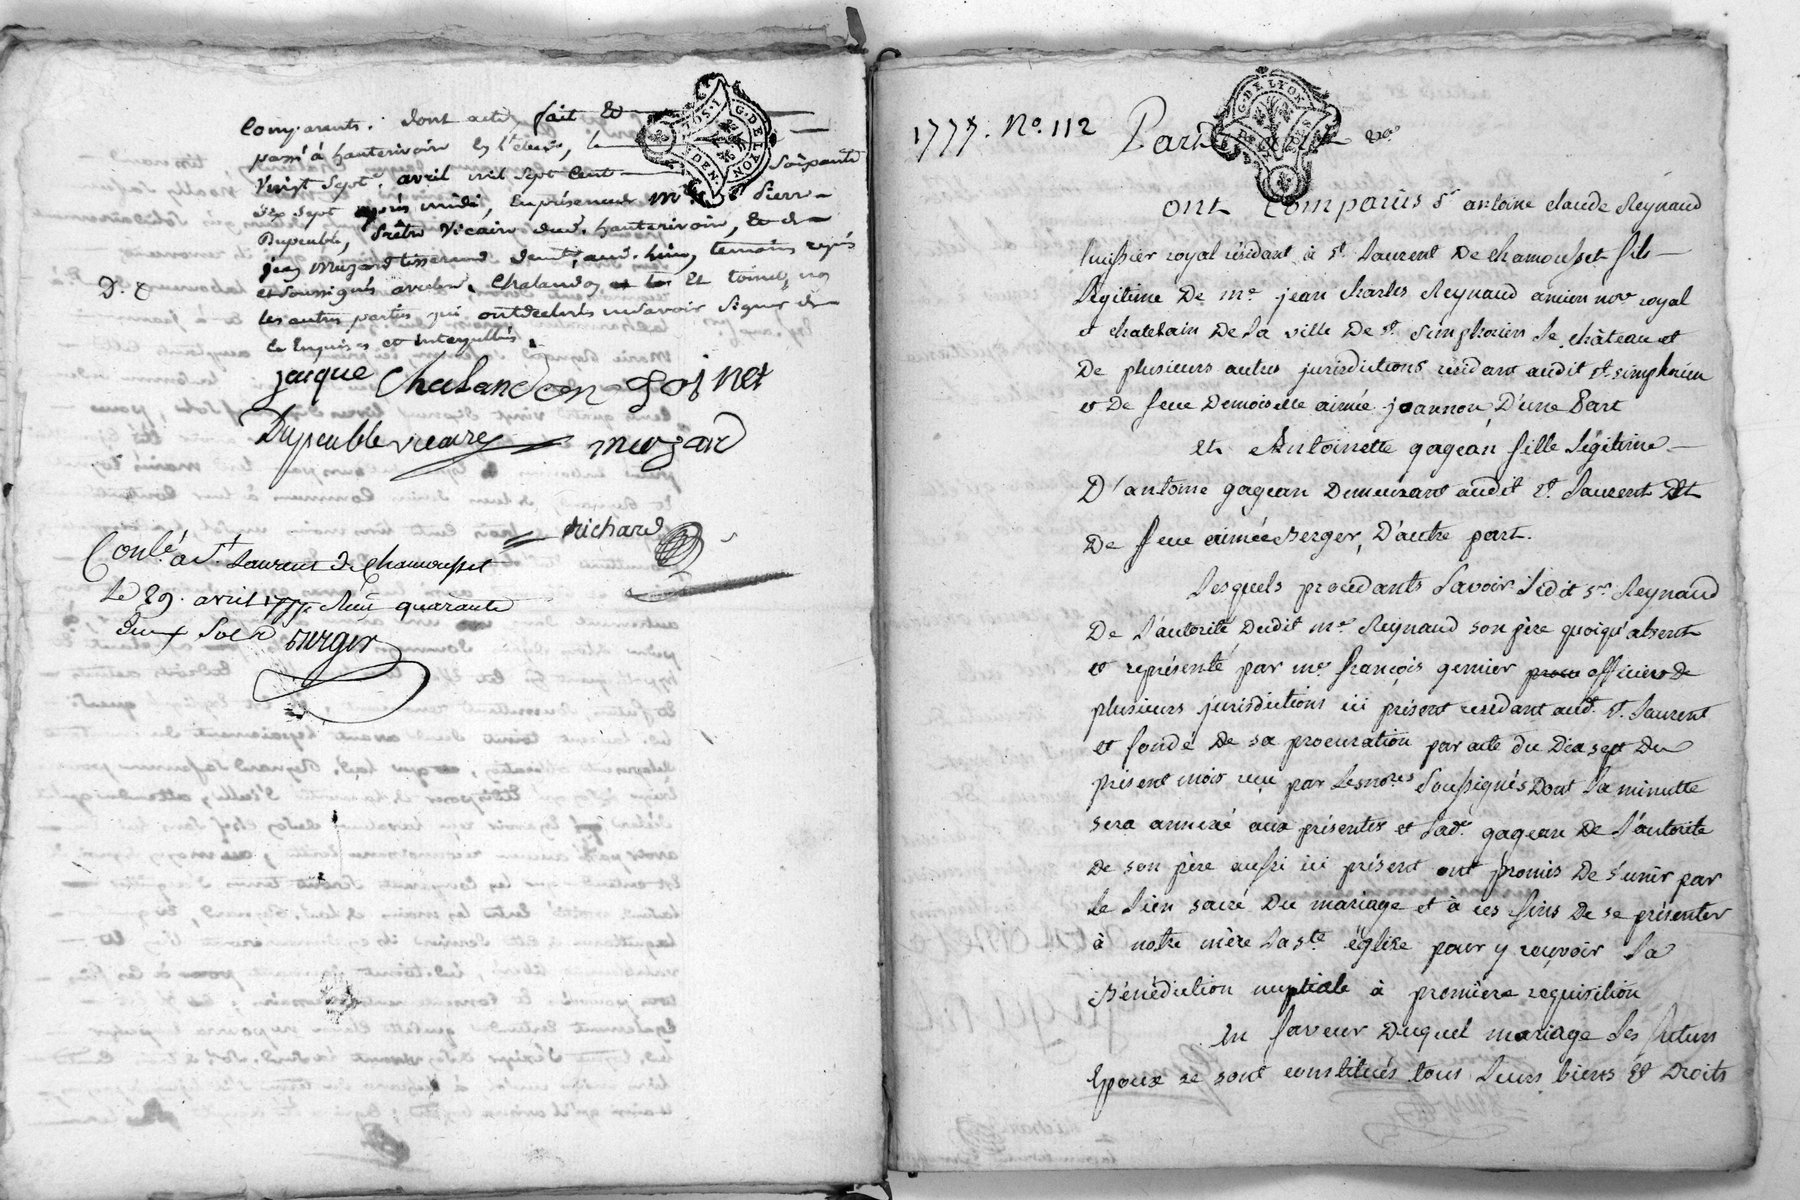 Comparants. dont acte fait et
passé à hauterivoire les l'étude, le
Vingt Sept. avril mil Sept Cent Soixante
dix Sept après midi, En présence de Mre Pierre
Dupeuble, Prêtre Vicaire dud. hauterivoire, Et de
jean muzard tisserand dem.t aud. lieu, temoins requis
et Soussignés avec led. Chalandon et Et toinet, non
les autres parties qui ont déclaré ne savoir Signer de
ce Enquises et interpellés.
D. &
jacque Chalandon toinet
Dupeuble vicaire muzard
Richard
Conlé. a St. Laurent de Chamousset
Le 29. avril 1777 Reçu quarante
deux Sols Berger
G. DE LYON
DEN.
1777. No. 112
Pard
G. DE LYON
ont Comparus Sr. antoine claude Reynaud
huissier royal résidant à St. Laurent De chamousset fils
légitime De me. jean charles Reynaud ancien nore royal
et chatelain De la ville De St. Simphorien le château et
De plusieurs autres jurisdictions résidant audit St. simphorien
et De feue Demoiselle aimée joannon D'une Part
et Antoinette gagean fille légitime
D'antoine gagean Demeurant audit St. Laurent Et
De feue aimée Berger, D'autre part.
Lesquels procédants savoir ledit Sr. Reynaud
De l'autorité Dudit me. Reynaud son père quoiqu'absent
et représenté par me. françois gernier officier de
plusieurs jurisdictions ici présent residant aud. St. Laurent
et fondé De sa procuration par acte du Dix sept Du
présent mois reçu par les nores soussignés Dont la minutte
sera annexé aux présentes et lade. gagean De l'autorité
De son père aussi ici présent ont promis De s'unir par
le lien sacré Du mariage et à ces fins De se présenter
à notre mère la Ste. église pour y reçevoir la
Bénédiction nuptiale à première requisition
En faveur Duquel mariage les futurs
Epoux se sont constitués tous leurs biens Et Droits